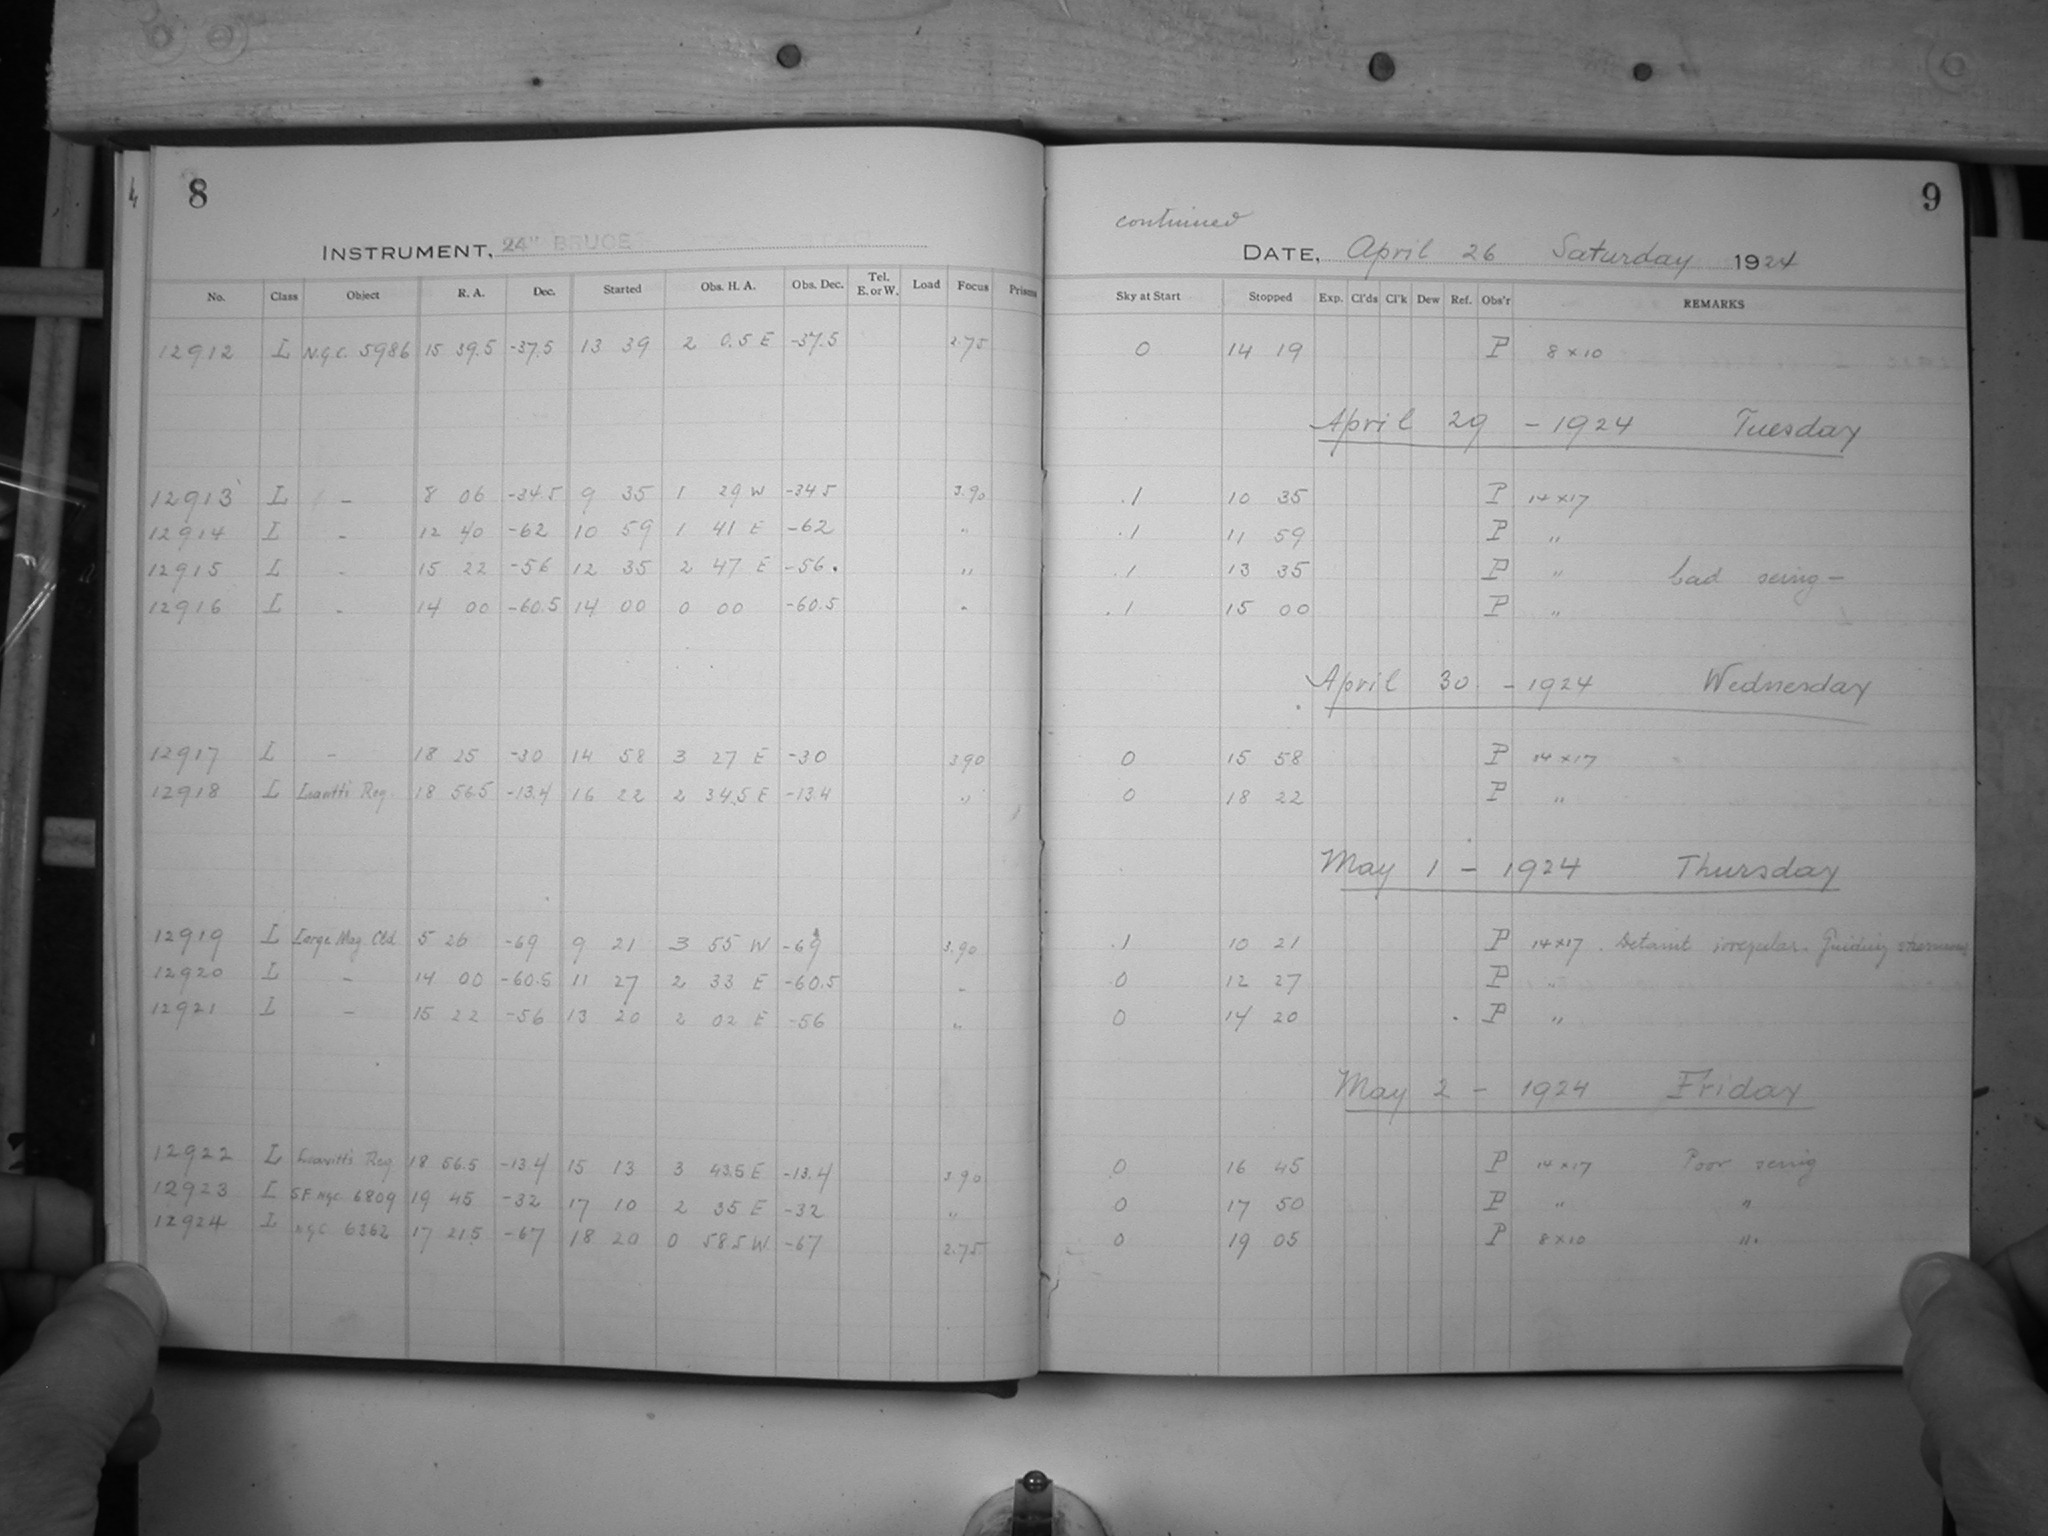 4
8
INSTRUMENT, 24" BRUCE
No. Class Object R. A. Dec. Started Obs. H. A. Obs. Dec. Tel. E. or W. Load Focus Prisms
12912 L N.G.C. 5986 15 39.5 -37.5 13 39 2 0.5 E -37.5 2.75
12913 L - 8 06 -34.5 9 35 1 29 W -34.5 3.90
12914 L - 12 40 -62 10 59 1 41 E -62 "
12915 L - 15 22 -56 12 35 2 47 E -56. "
12916 L - 14 00 -60.5 14 00 0 00 -60.5 "
12917 L - 18 25 -30 14 58 3 27 E -30 3.90
12918 L Leavitt's Reg. 18 56.5 -13.4 16 22 2 34.5 E -13.4 "
12919 L Large Mag Cld 5 26 -69 9 21 3 55 W -69 3.90
12920 L - 14 00 -60.5 11 27 2 33 E -60.5 "
12921 L - 15 22 -56 13 20 2 02 E -56 "
12922 L Leavitt's Reg 18 56.5 -13.4 15 13 3 43.5 E -13.4 3.90
12923 L S.F. NgC 6809 19 45 -32 17 10 2 35 E -32 "
12924 L NgC 6362 17 21.5 -67 18 20 0 58.5 W -67 2.75
9
continued
DATE, April 26 Saturday 1924
Sky at Start Stopped Exp. Cl'ds Cl'k Dew Ref. Obs'r REMARKS
0 14 19 P 8 x 10
April 29 - 1924 Tuesday
.1 10 35 P 14 x 17
.1 11 59 P "
.1 13 35 P " bad seeing -
.1 15 00 P "
April 30 - 1924 Wednesday
0 15 58 P 14 x 17
0 18 22 P "
May 1 - 1924 Thursday
.1 10 21 P 14 x 17 . irregular. Guiding
0 12 27 P "
0 14 20 P "
May 2 - 1924 Friday
0 16 45 P 14 x 17 Poor seeing
0 17 50 P " "
0 19 05 P 8 x 10 "